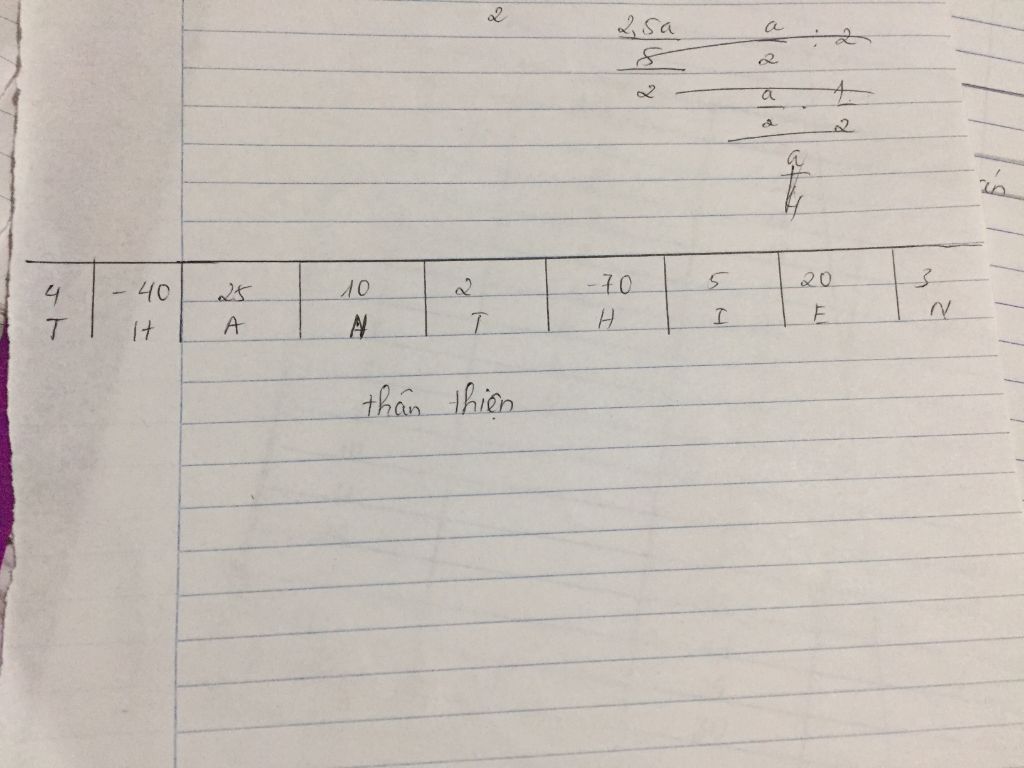 2
2,5a a : 2
5 2
2 a . 1
2 2
a
4
4 -40 25 10 2 -70 5 20 3
T H A N T H I E N
thân thiện